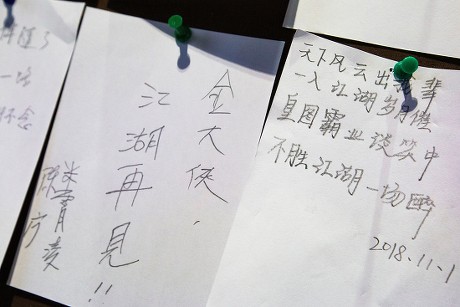 金大侠.
江湖再見!!
天下风云出我辈
一入江湖岁月催
皇图霸业谈笑中
不胜江湖一场醉
2018.11.1